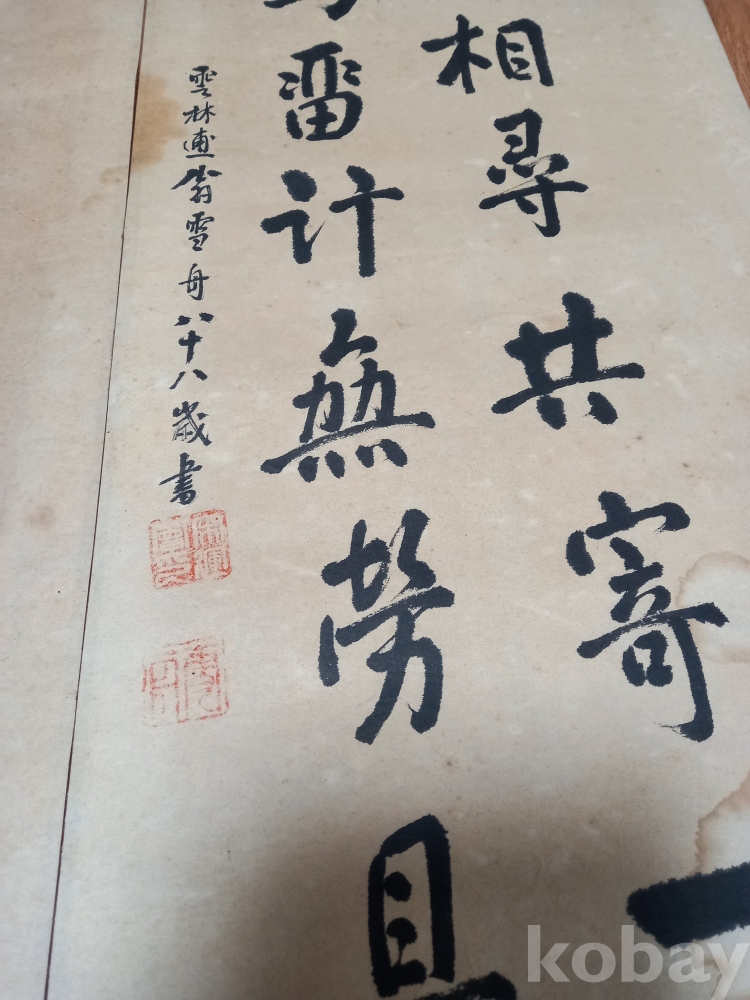 相尋共寄一
留計無勞且
雲林逋翁雪舟八十八歲書
kobay